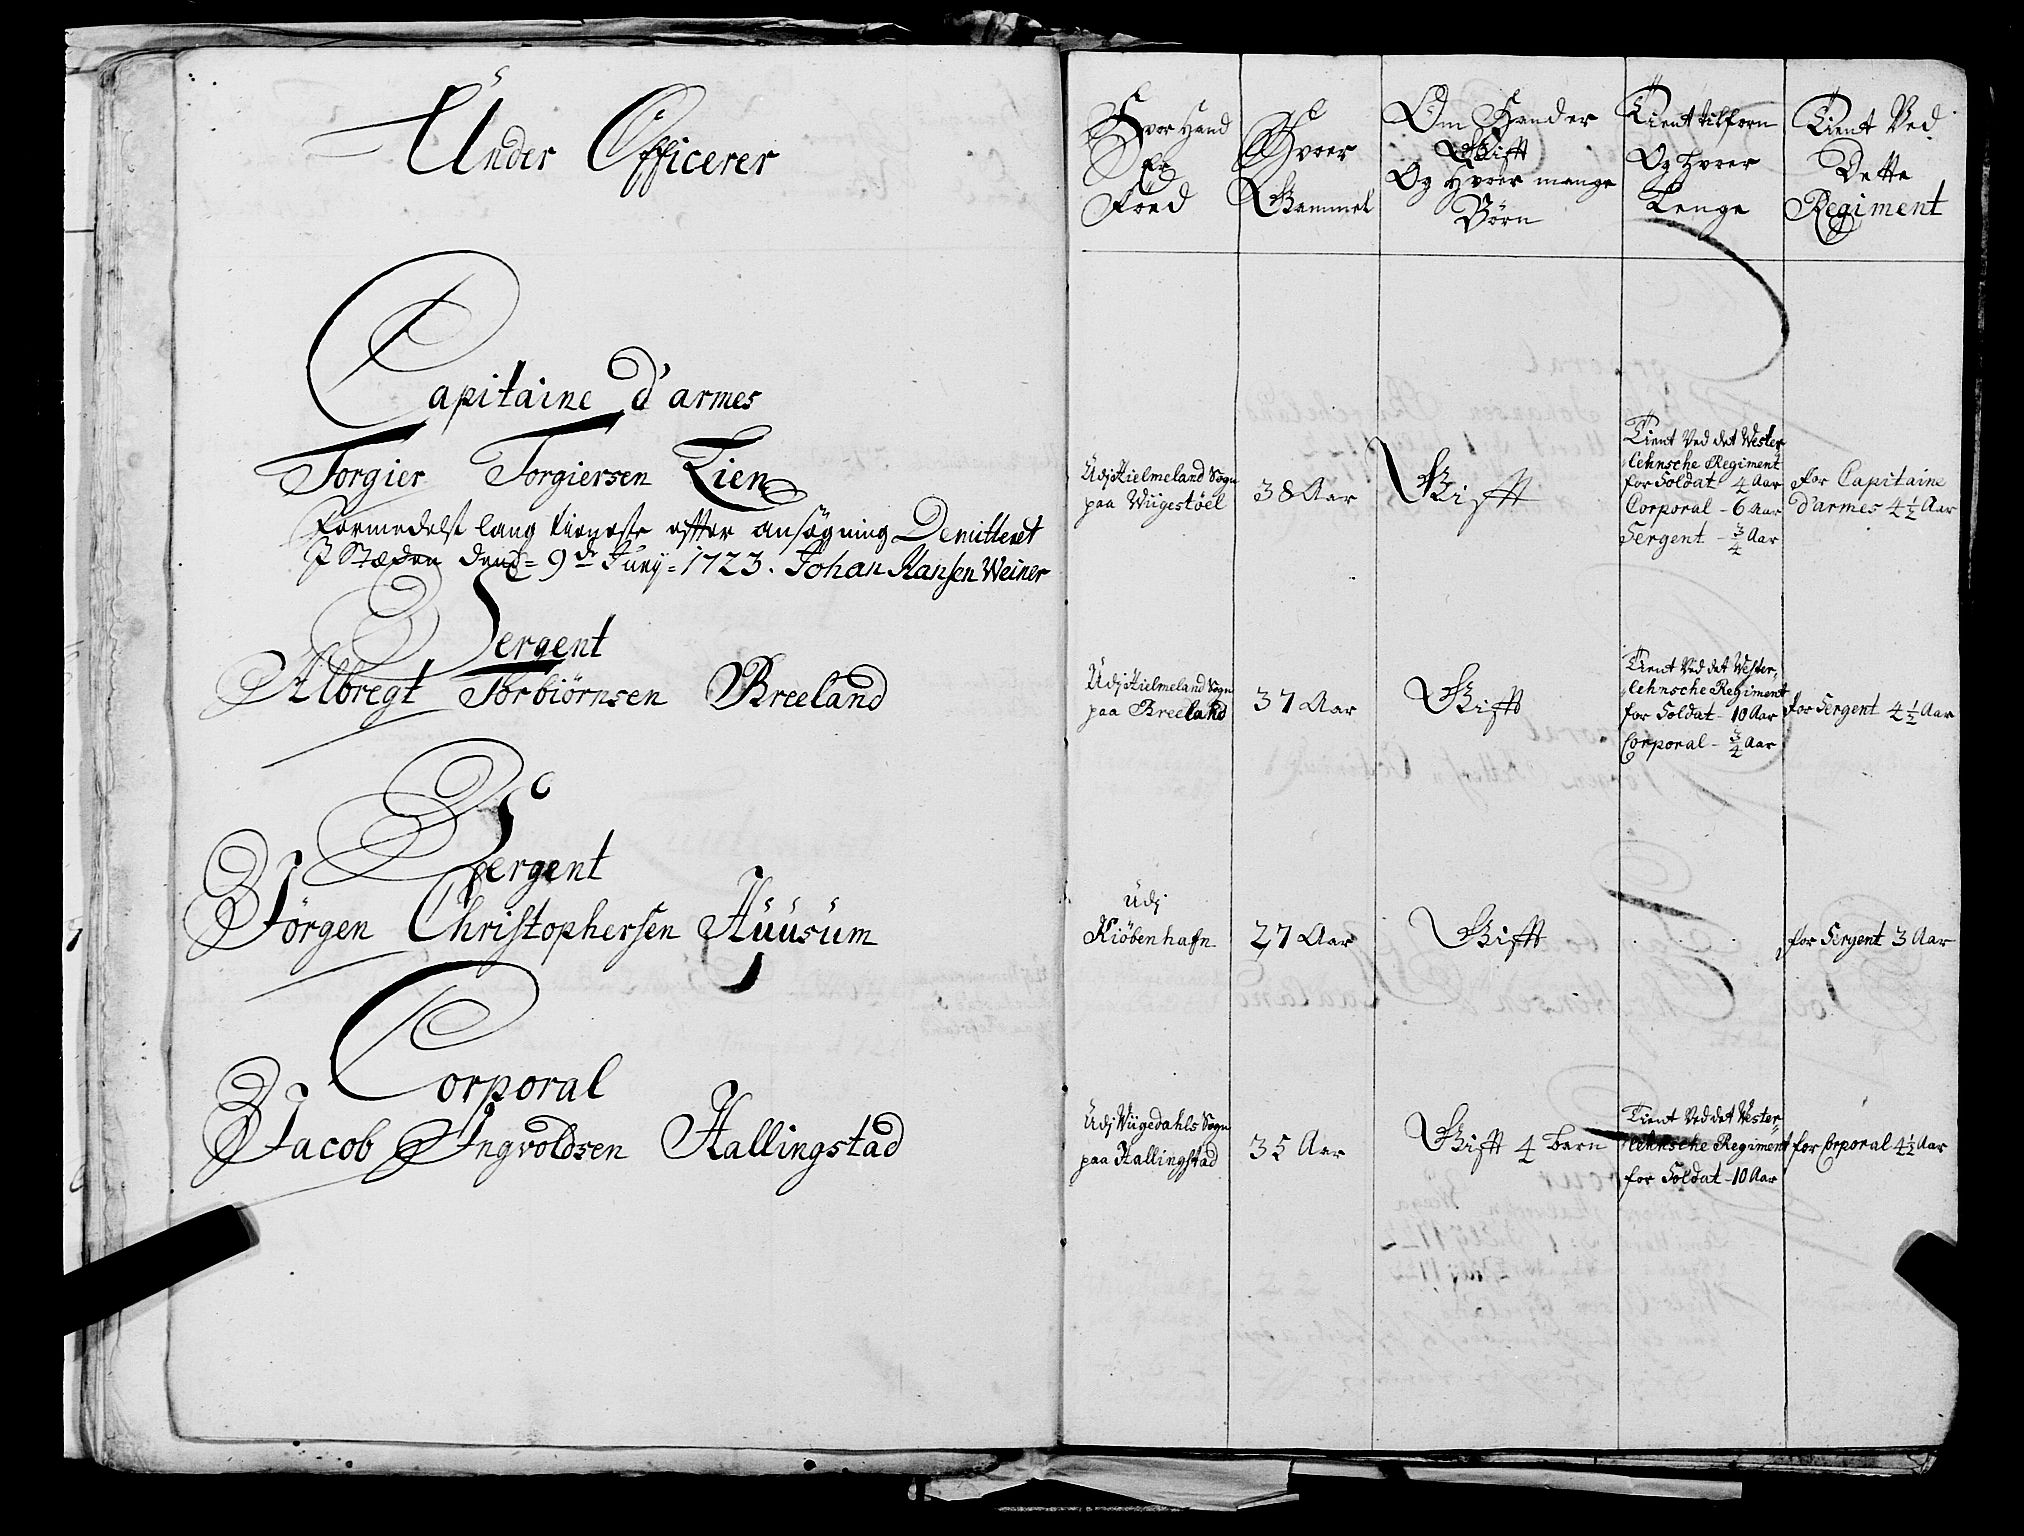 Under Officerer
Capitaine d'armes
Torgier Torgiersen Lien
formedelst lang tieneste effter ansøgning Demitteret
J Stæden dend = 9de Juny = 1723. Johan Hansen Weiner
Sergent
Albregt Torbiörnsen Breeland
Sergent
Jörgen Christophersen Huusum
Corporal
Jacob Ingvoldsen Hallingstad
Hvor Hand
Er
Föed
Hvor
Gammel
Om Hand er
Gifft
Og Hvor mange
Börn
Tient tilforn
Og hvor
Lenge
Tient Ved
Dette
Regiment
Udj Hielmeland Sogn
paa Wiigestöel
38 Aar
Gifft
Tient Ved det Wester
lehnsche Regiment
for Soldat 4 Aar
Corporal - 6 Aar
Sergent - 3/4 Aar
for Capitaine
d'armes 4 1/2 Aar
Udj Hielmeland Sogn
paa Breeland
37 Aar
Gifft
Tient Ved det Wester,
lehnsche Regiment
for Soldat - 10 Aar
Corporal - 3/4 Aar
for Sergent 4 1/2 Aar
Udj
Kiöbenhafn
27 Aar
Gifft
for Sergent 3 Aar
Udj Wiigedahls Sogn
paa Hallingstad
35 Aar
Gifft 4 barn
Tient Ved det Wester,
lehnsche Regiment
for Soldat - 10 Aar
for Corporal 4 1/2 Aar